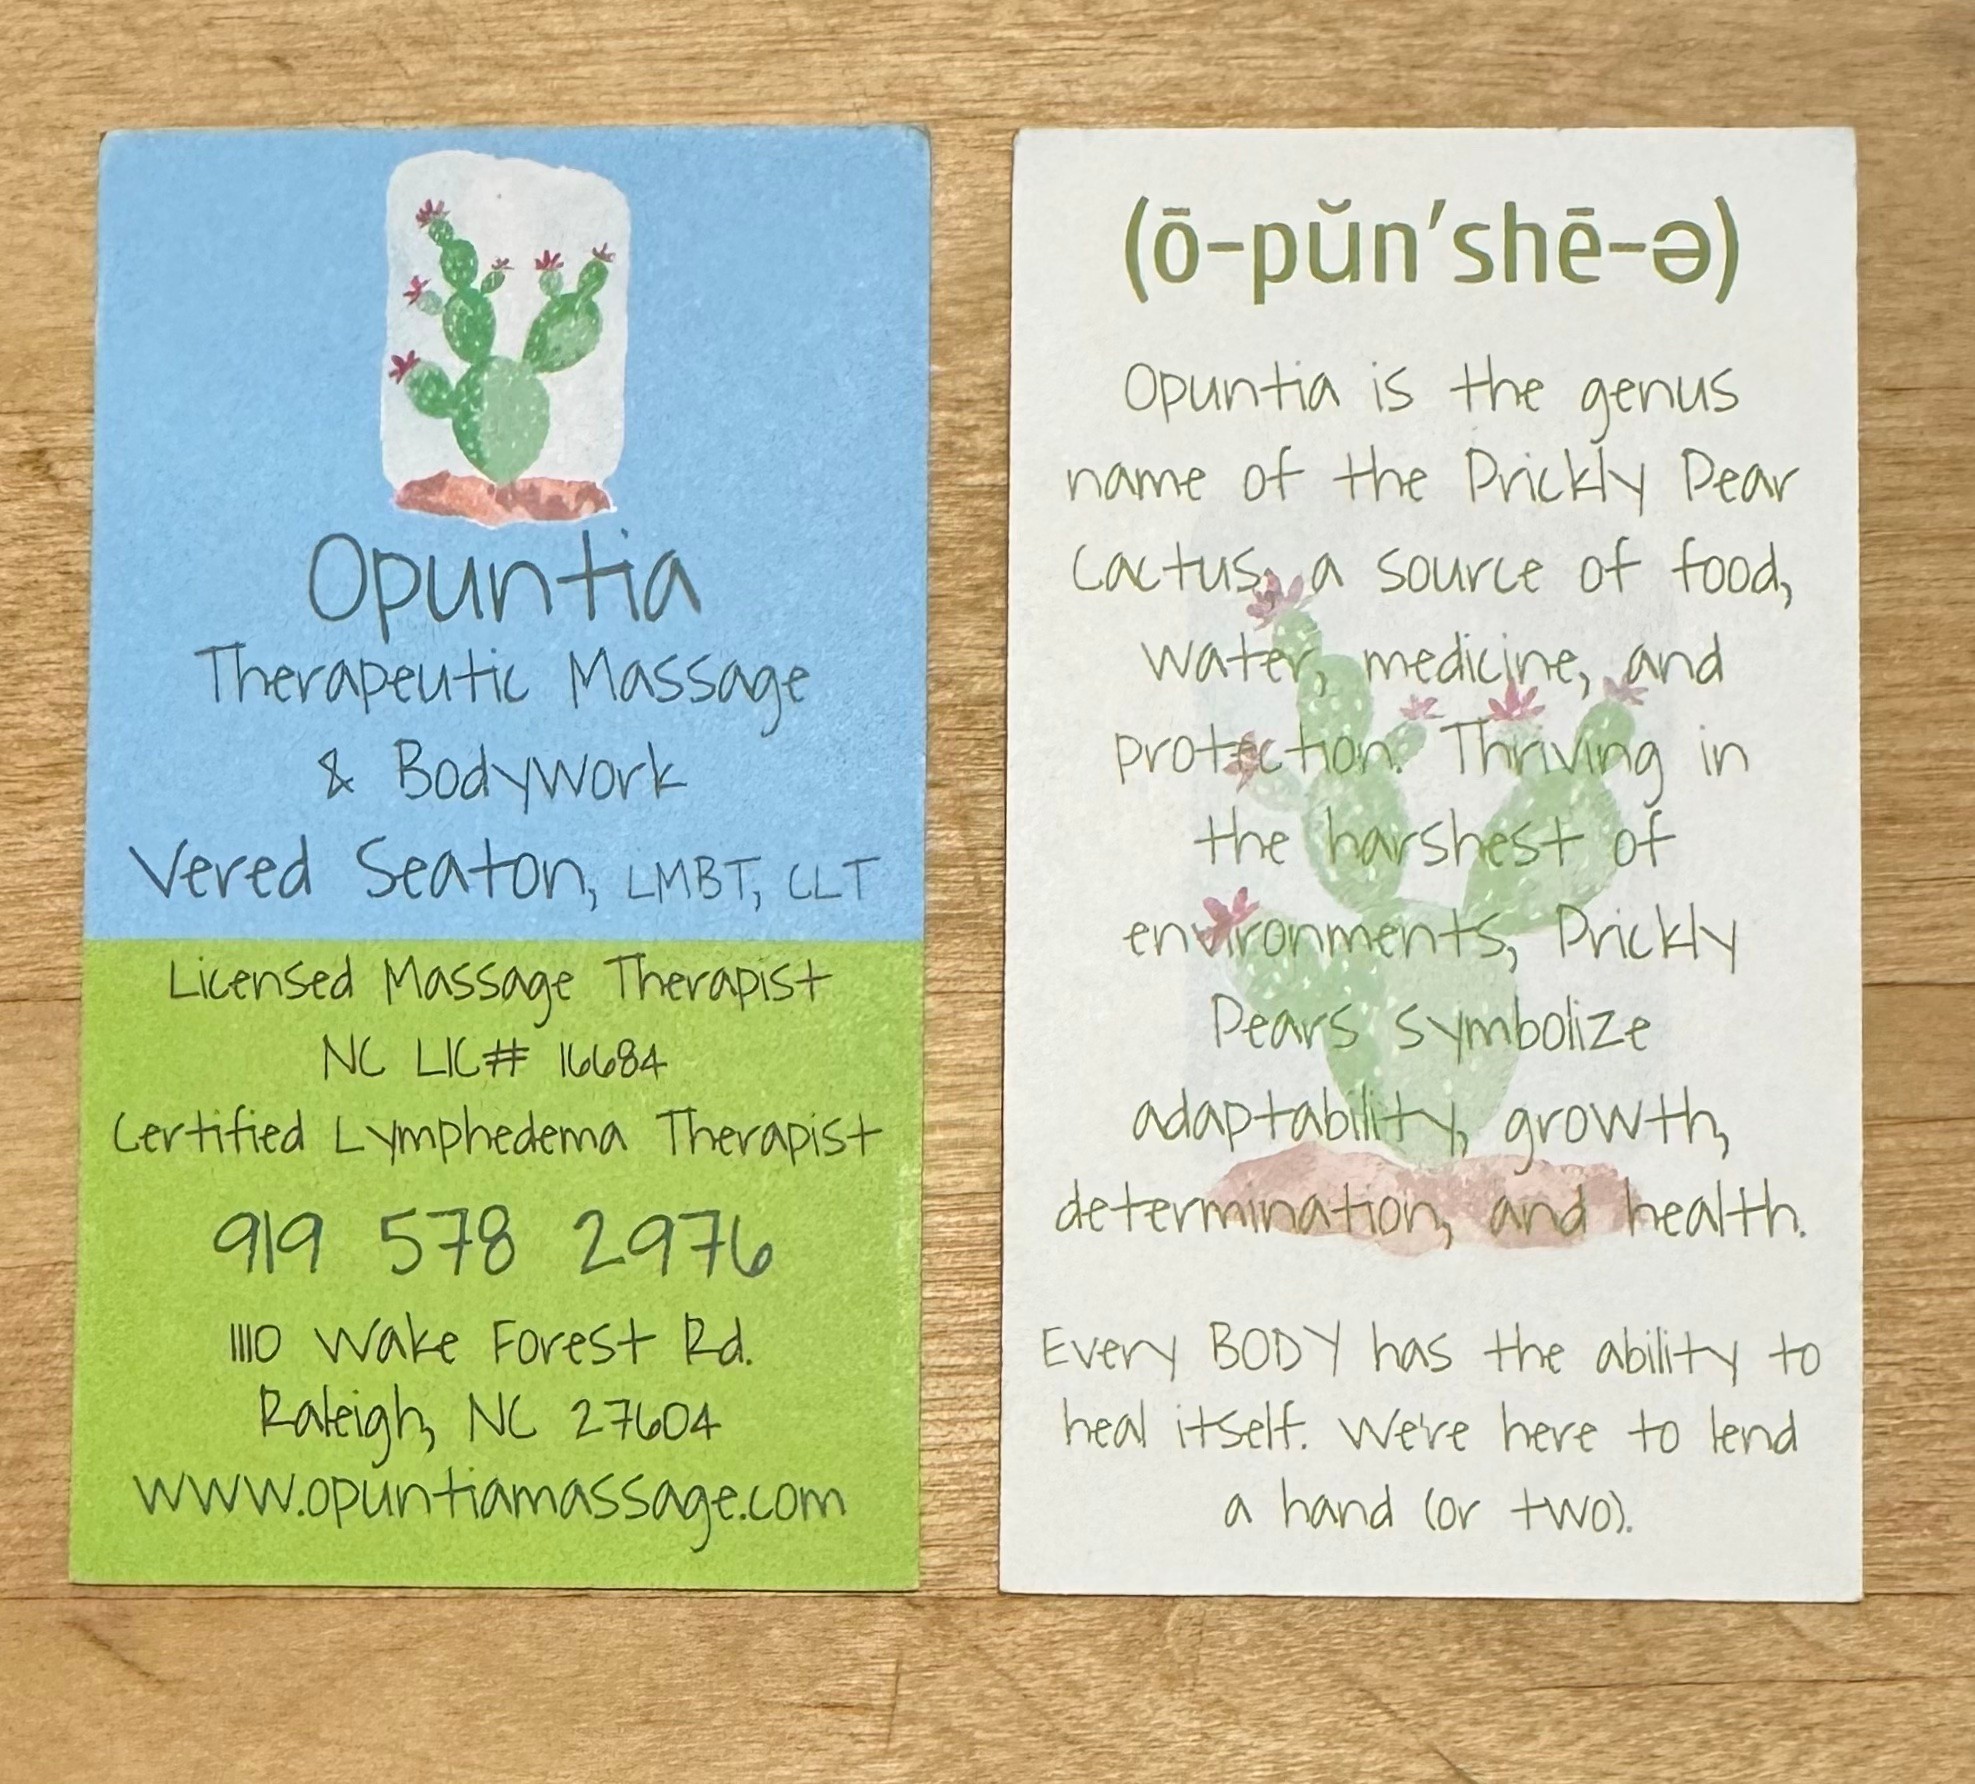 Opuntia
Therapeutic Massage
& Bodywork
Vered Seaton, LMBT, CLT
Licensed Massage Therapist
NC LIC# 16684
Certified Lymphedema Therapist
919 578 2976
1110 Wake Forest Rd.
Raleigh, NC 27604
www.opuntiamassage.com
(ō-pŭn'shē-ə)
Opuntia is the genus
name of the Prickly Pear
Cactus, a source of food,
water, medicine, and
protection. Thriving in
the harshest of
environments, Prickly
Pears symbolize
adaptability, growth,
determination, and health.
Every BODY has the ability to
heal itself. We're here to lend
a hand (or two).